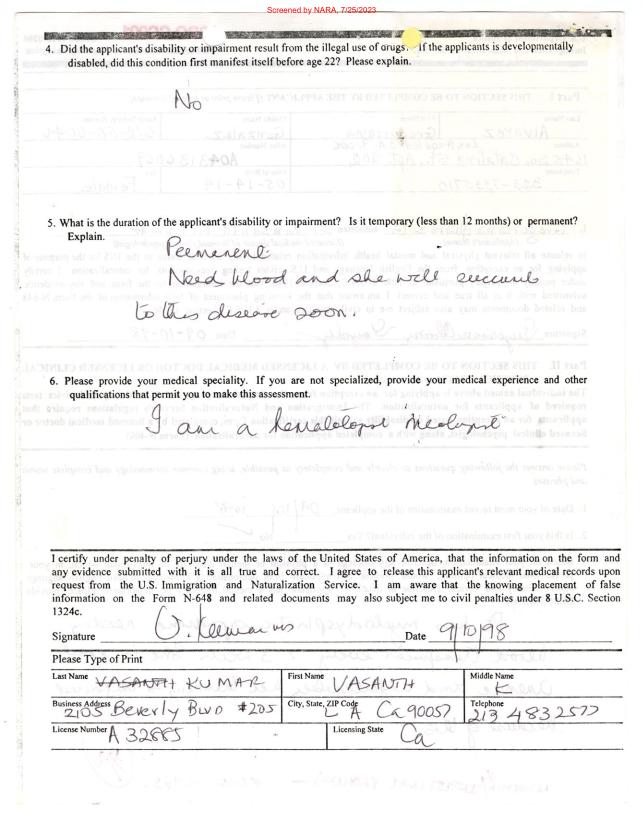 Screened by NARA, 7/25/2023
4. Did the applicant's disability or impairment result from the illegal use of drugs. If the applicants is developmentally
disabled, did this condition first manifest itself before age 22? Please explain.
No
5. What is the duration of the applicant's disability or impairment? Is it temporary (less than 12 months) or permanent?
Explain.
Permanent
Need blood and she will succumb
to this disease soon.
6. Please provide your medical speciality. If you are not specialized, provide your medical experience and other
qualifications that permit you to make this assessment.
I am a hematologist
I certify under penalty of perjury under the laws of the United States of America, that the information on the form and
any evidence submitted with it is all true and correct. I agree to release this applicant's relevant medical records upon
request from the U.S. Immigration and Naturalization Service. I am aware that the knowing placement of false
information on the Form N-648 and related documents may also subject me to civil penalties under 8 U.S.C. Section
1324c.
Signature Date 9/10/98
Please Type of Print
Last Name VASANTH KUMAR First Name VASANTH Middle Name K
Business Address 2105 Beverly Blvd #205 City, State, ZIP Code L A Ca 90057 Telephone 213 483 2577
License Number A 32885 Licensing State Ca